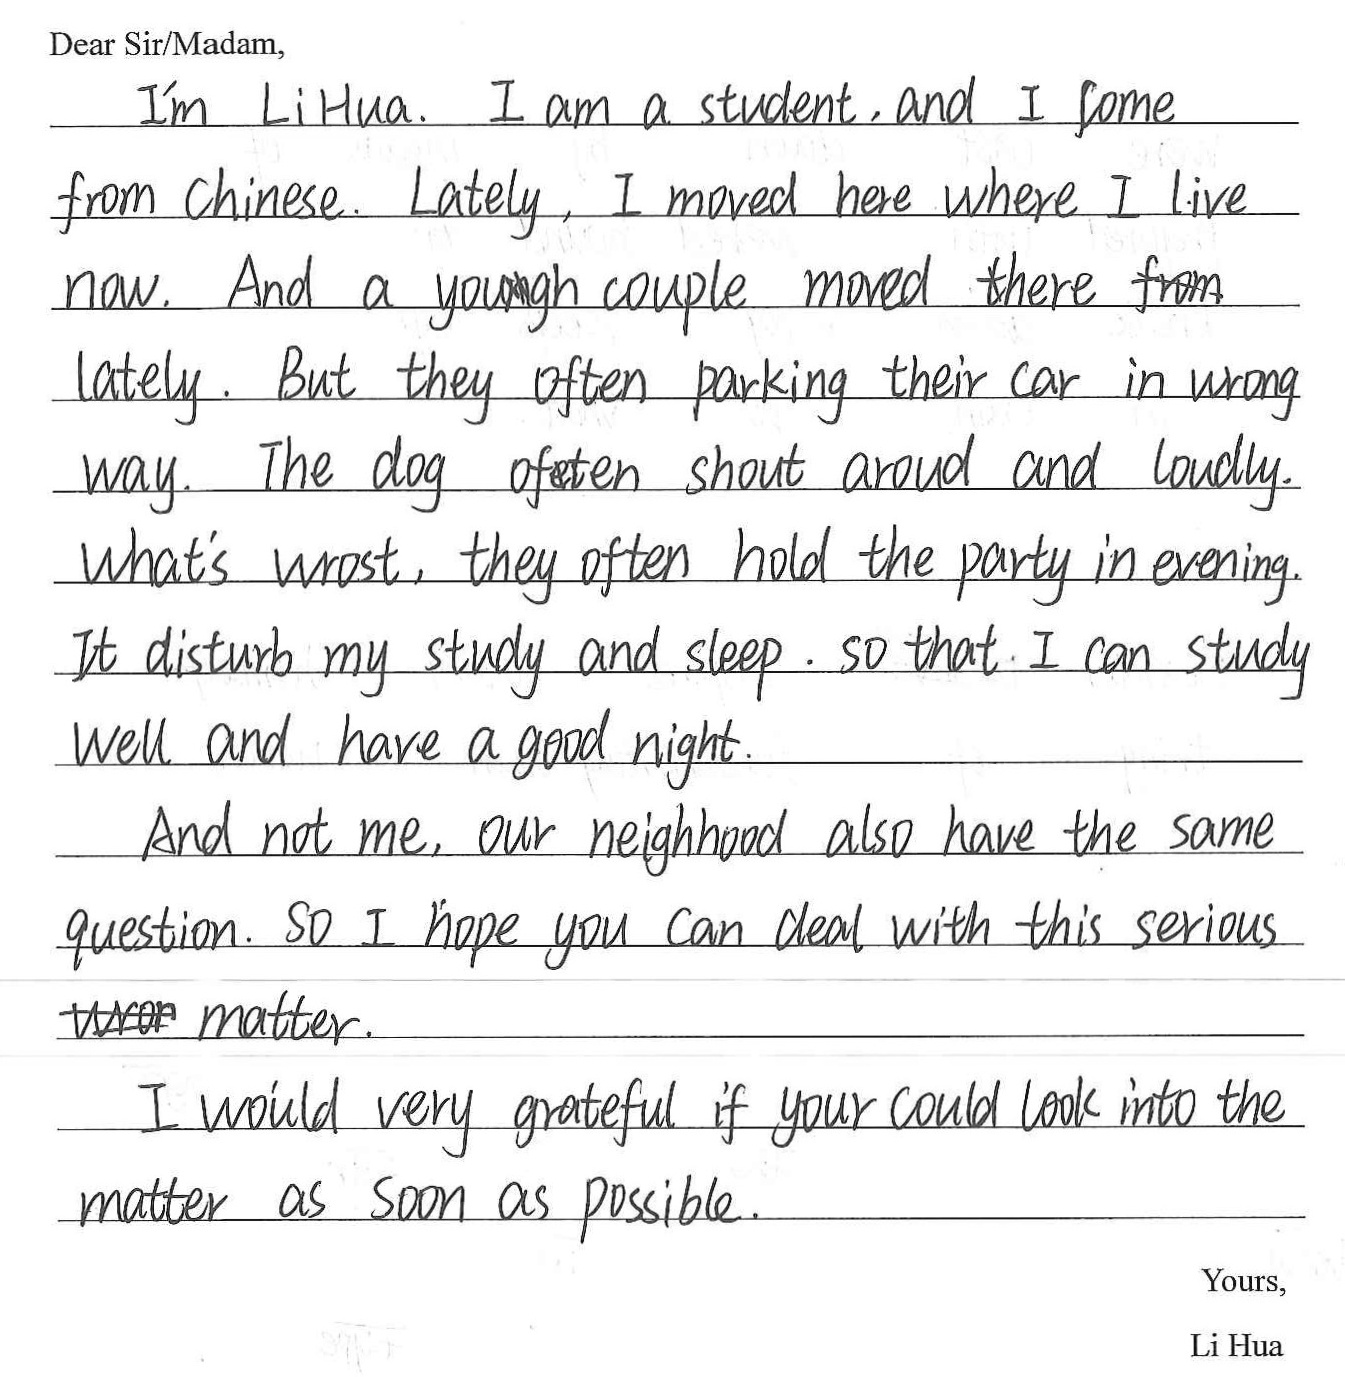 Dear Sir/Madam,
I'm Li Hua. I am a student, and I come
from Chinese. Lately, I moved here where I live
now. And a youngh couple moved there from
lately. But they often parking their car in wrong
way. The dog often shout aroud and loudly.
What's wrost, they often hold the party in evening.
It disturb my study and sleep. so that I can study
well and have a good night.
And not me, our neighhood also have the same
question. So I hope you can deal with this serious
matter.
I would very grateful if your could look into the
matter as soon as possible.
Yours,
Li Hua